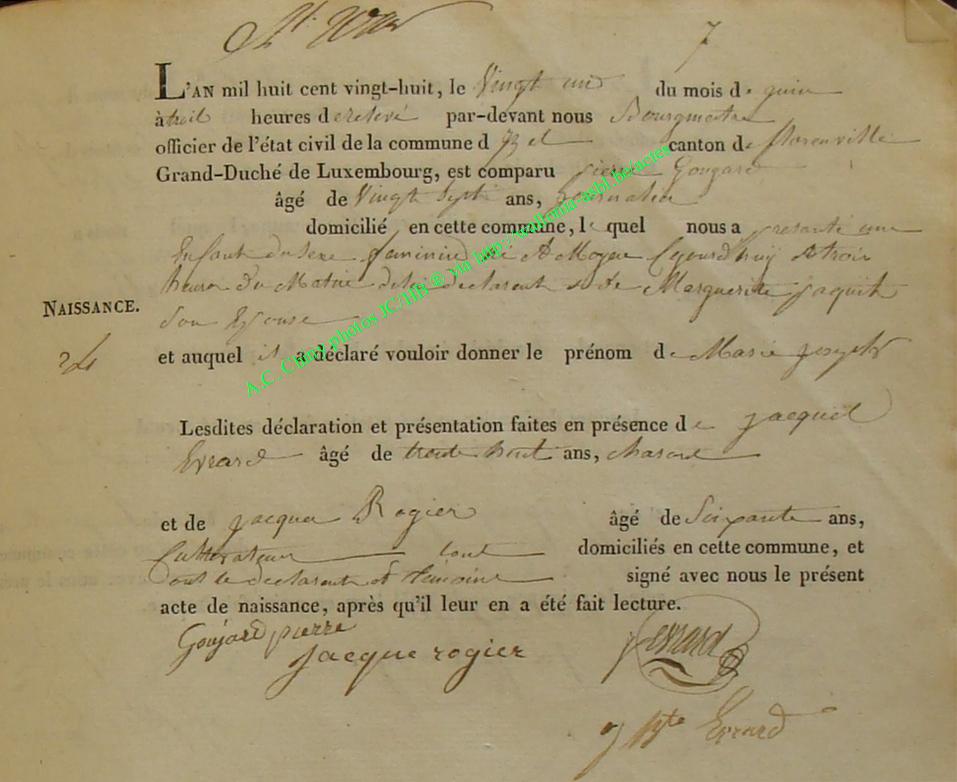 7
L'AN mil huit cent vingt-huit, le Vingt un du mois de juin
à trois heures de relevé par-devant nous Bourgmestre
officier de l'état civil de la commune d canton de florenville
Grand-Duché de Luxembourg, est comparu pierre Gougard
âgé de Vingt Sept ans,
domicilié en cette commune, le quel nous a presenté une
Enfant du sexe feminine né A Moyen a trois
heures du Matin de lui declarant et de Marguerite jaquet
Son Epouse
NAISSANCE.
et auquel il a déclaré vouloir donner le prénom de Marie joseph
Lesdites déclaration et présentation faites en présence de jacque
Evrard âgé de trente huit ans,
et de jacque Rogier âgé de Soixante ans,
Cultivateur tout domiciliés en cette commune, et
ont le declarant et témoins signé avec nous le présent
acte de naissance, après qu'il leur en a été fait lecture.
Goujard pierre
jacque rogier
j evrard
j Bte Evrard
A.C. Chiny photos JC/HB ® via http://wallonia-asbl.be/actes